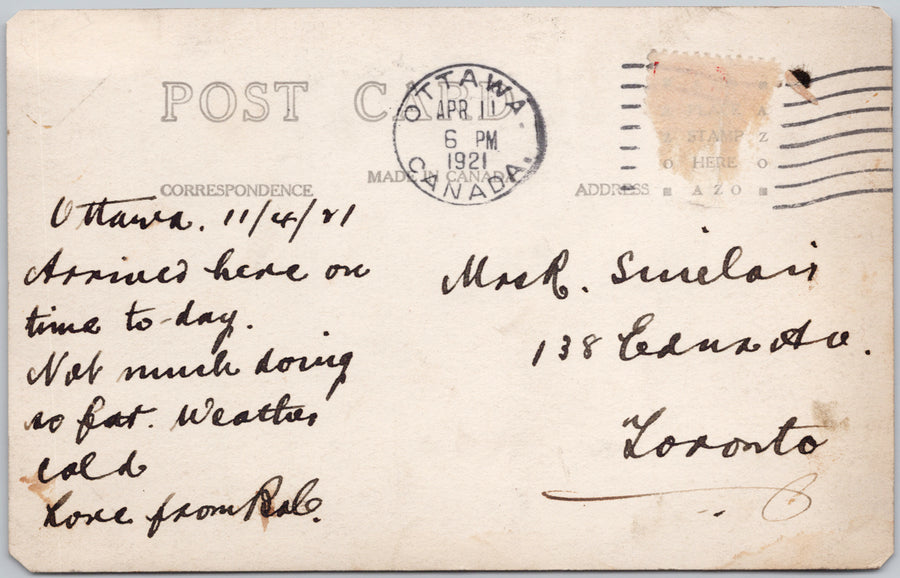 POST CARD
OTTAWA.
APR 11
6 PM
1921
CANADA.
MADE IN CANADA
CORRESPONDENCE
ADDRESS
PLACE
STAMP
HERE
AZO
Ottawa. 11/4/21
Arrived here on
time to-day.
Not much doing
so far. Weather
cold
Love from Rob.
Mrs R. Sinclair
138 Edna Av.
Toronto